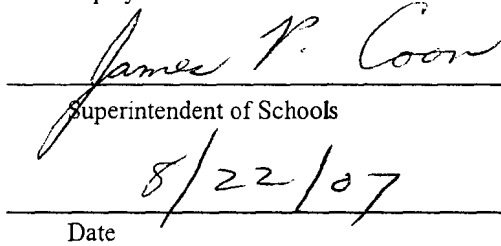 James P. Coon
Superintendent of Schools
8/22/07
Date